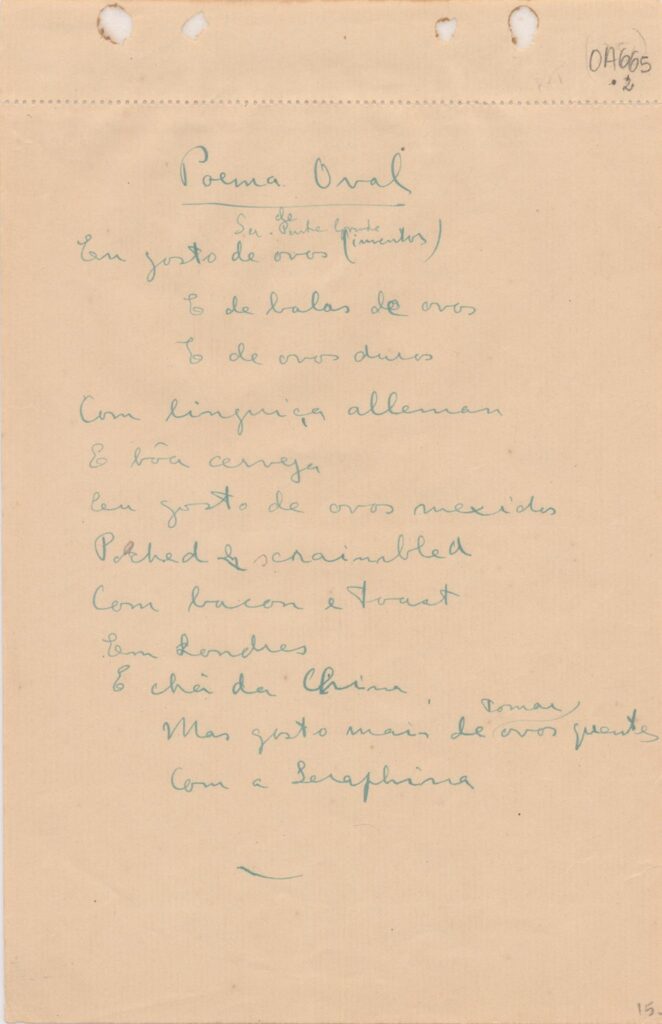 OA665
.2
Poema Oval
de
Ponte Grande
Eu gosto de ovos (imentos)
E de balas de ovos
E de ovos duros
Com linguiça alleman
E bôa cerveja
Eu gosto de ovos mexidos
Poched & scraimbled
Com bacon e toast
Em Londres
E chá da China
tomar
Mas gosto mais de ovos quentes
Com a Seraphina
15.